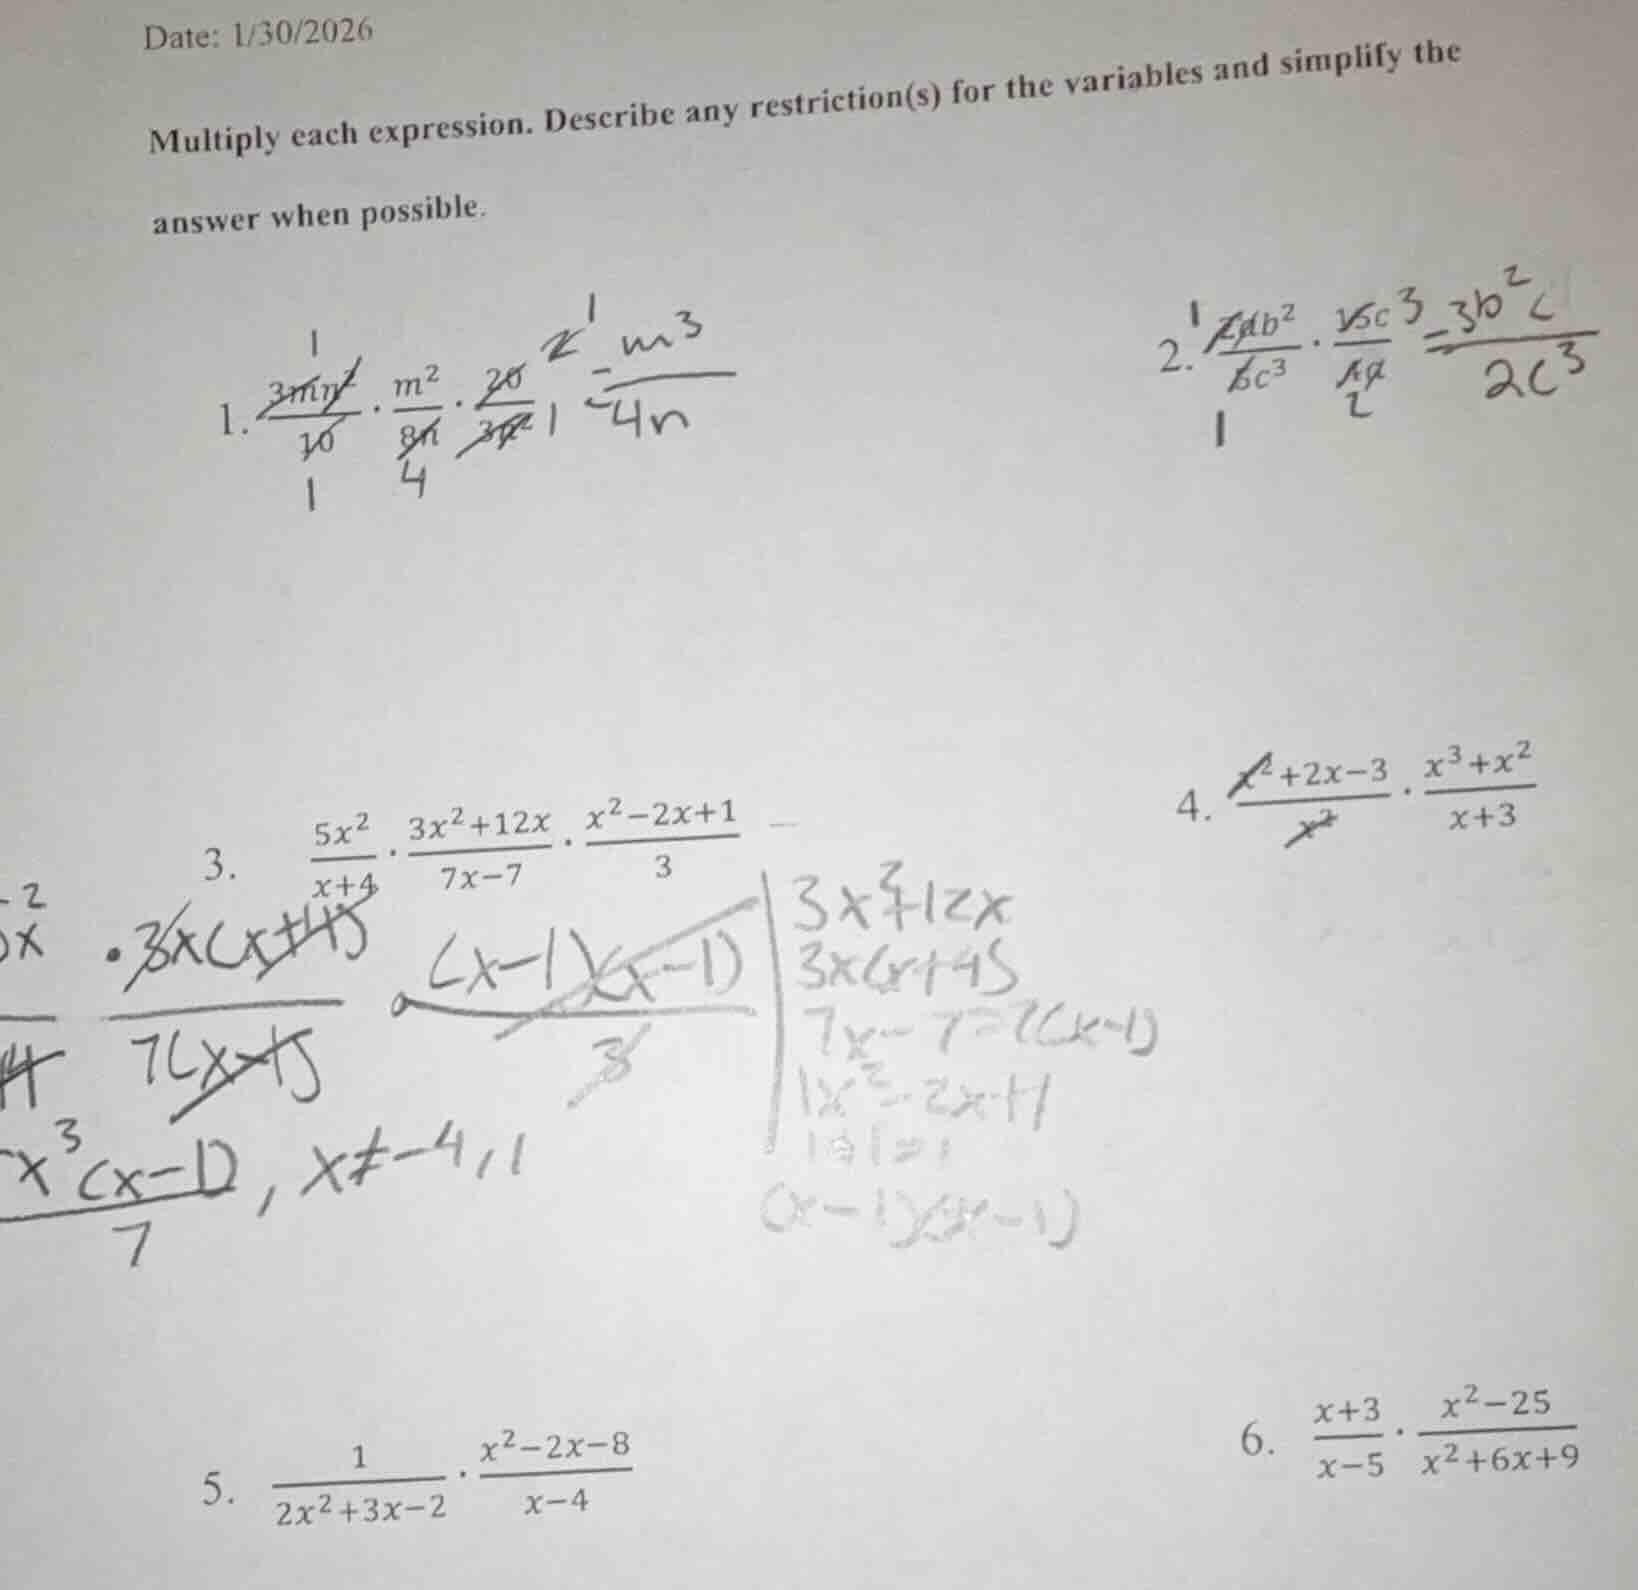 Date: 1/30/2026
Multiply each expression. Describe any restriction(s) for the variables and simplify the
answer when possible.
1. 3mn²/10 · m²/8n · 20/3n² = m³/4n
1 1 4 2 1 1
2. 2ab²/5c³ · 15c/4a = 3b²c/2c³
1 1 3 2
3. 5x²/x+4 · 3x²+12x/7x−7 · x²−2x+1/3
4. x²+2x−3/x² · x³+x²/x+3
x² · 3x(x+4) · (x−1)(x−1)
4 7(x−1) 3
x³(x−1)/7, x≠−4,1
3x²+12x
3x(x+4)
7x−7=7(x−1)
1x²−2x+1
(x−1)(x−1)
5. 1/2x²+3x−2 · x²−2x−8/x−4
6. x+3/x−5 · x²−25/x²+6x+9